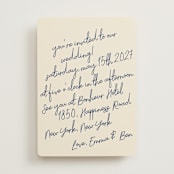 you're invited to our
wedding!
saturday, may 15th, 2027
at five o'clock in the afternoon
See you at Bonheur Hotel
1850, Happiness Road
New York, New York
Love, Emma & Ben